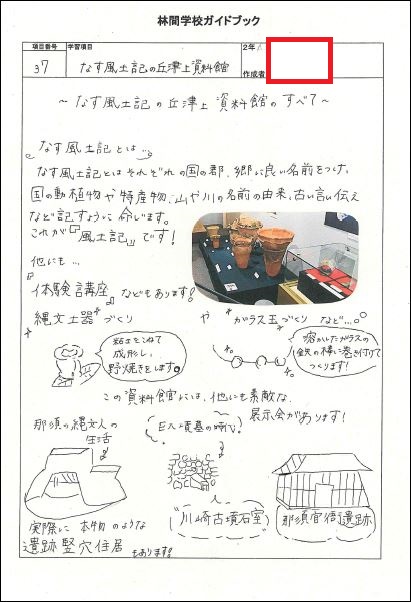 林間学校ガイドブック
項目番号 学習項目 2年
37 なす風土記の丘津上資料館 作成者
～なす風土記の丘津上資料館のすべて～
なす風土記とは…
なす風土記とはそれぞれの国の郡、郷に良い名前をつけ、
国の動植物や特産物、山や川の名前の由来、古い言い伝え
など記すように命じます。
これが『風土記』です！
他にも…
『体験講座』などもあります！
縄文土器づくり や ガラス玉づくり など…。
粘土をこねて
成形し、
野焼きをします。
溶かしたガラスの
鉄の棒に巻き付けて
つくります！
この資料館には、他にも素敵な
展示会があります！
那須の縄文人の
生活
巨大墳墓の時代
実際に本物のような
遺跡竪穴住居もあります！
川崎古墳石室
那須官衙遺跡